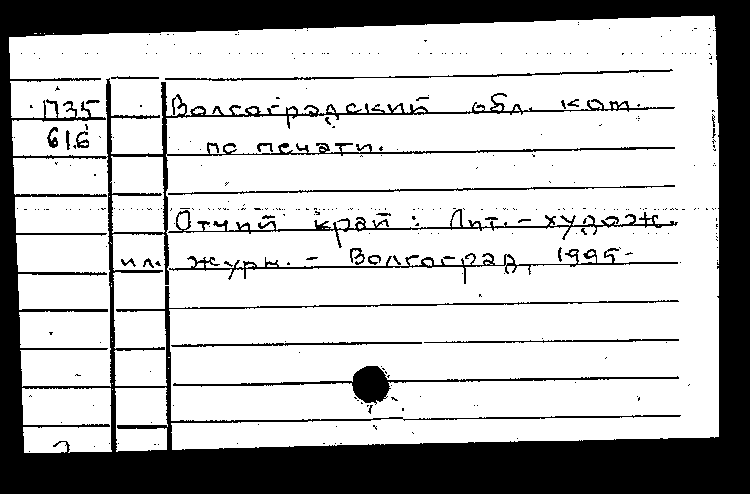 П35
616
Волгоградский обл. ком.
по печати.
Отчий край : Лит.-худож.
ил. журн. - Волгоград, 1995-